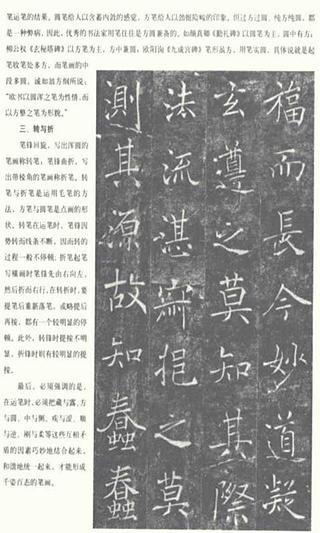 笔运笔的结果。圆笔给人以含蓄内敛的感觉，方笔给人以劲挺险峻的印象，但过方过圆，纯方纯圆，都
是一种弊病，因此，优秀的书法家用笔往往是方圆兼备的。如颜真卿《勤礼碑》以圆笔为主，圆中有方；
柳公权《玄秘塔碑》以方笔为主，方中兼圆；欧阳询《九成宫碑》笔形虽方，用笔实圆，具体说就是起
笔收笔处多方，而笔画的中
段多圆，诚如翁方纲所说：
“欧书以圆浑之笔为性情，而
以方整之笔为形貌。”
三、转与折
笔锋回旋，写出浑圆的
笔画称转笔，笔锋曲折，写
出带棱角的笔画称折笔。转
笔与折笔是运用毛笔的方
法，方笔与圆笔是点画的形
状。转笔在运笔时，笔锋因
势转而线条不断，因而转的
过程一般不停顿；折笔起笔
写横画时笔锋先由右向左，
然后折而右行，在转折时，要
提笔后重新落笔，或略提后
再按，都有一个较明显的停
顿。此外，转锋时提按不明
显，折锋时则有较明显的提
按。
最后，必须强调的是，
在运笔时，必须把藏与露、方
与圆、中与侧、疾与涩、顺
与逆、刚与柔等这些互相矛
盾的因素巧妙地结合起来，
和谐地统一起来，才能形成
千姿百态的笔画。
福而長今妙道凝
玄遵之莫知其際
法流湛寂挹之莫
測其源故知蠢蠢